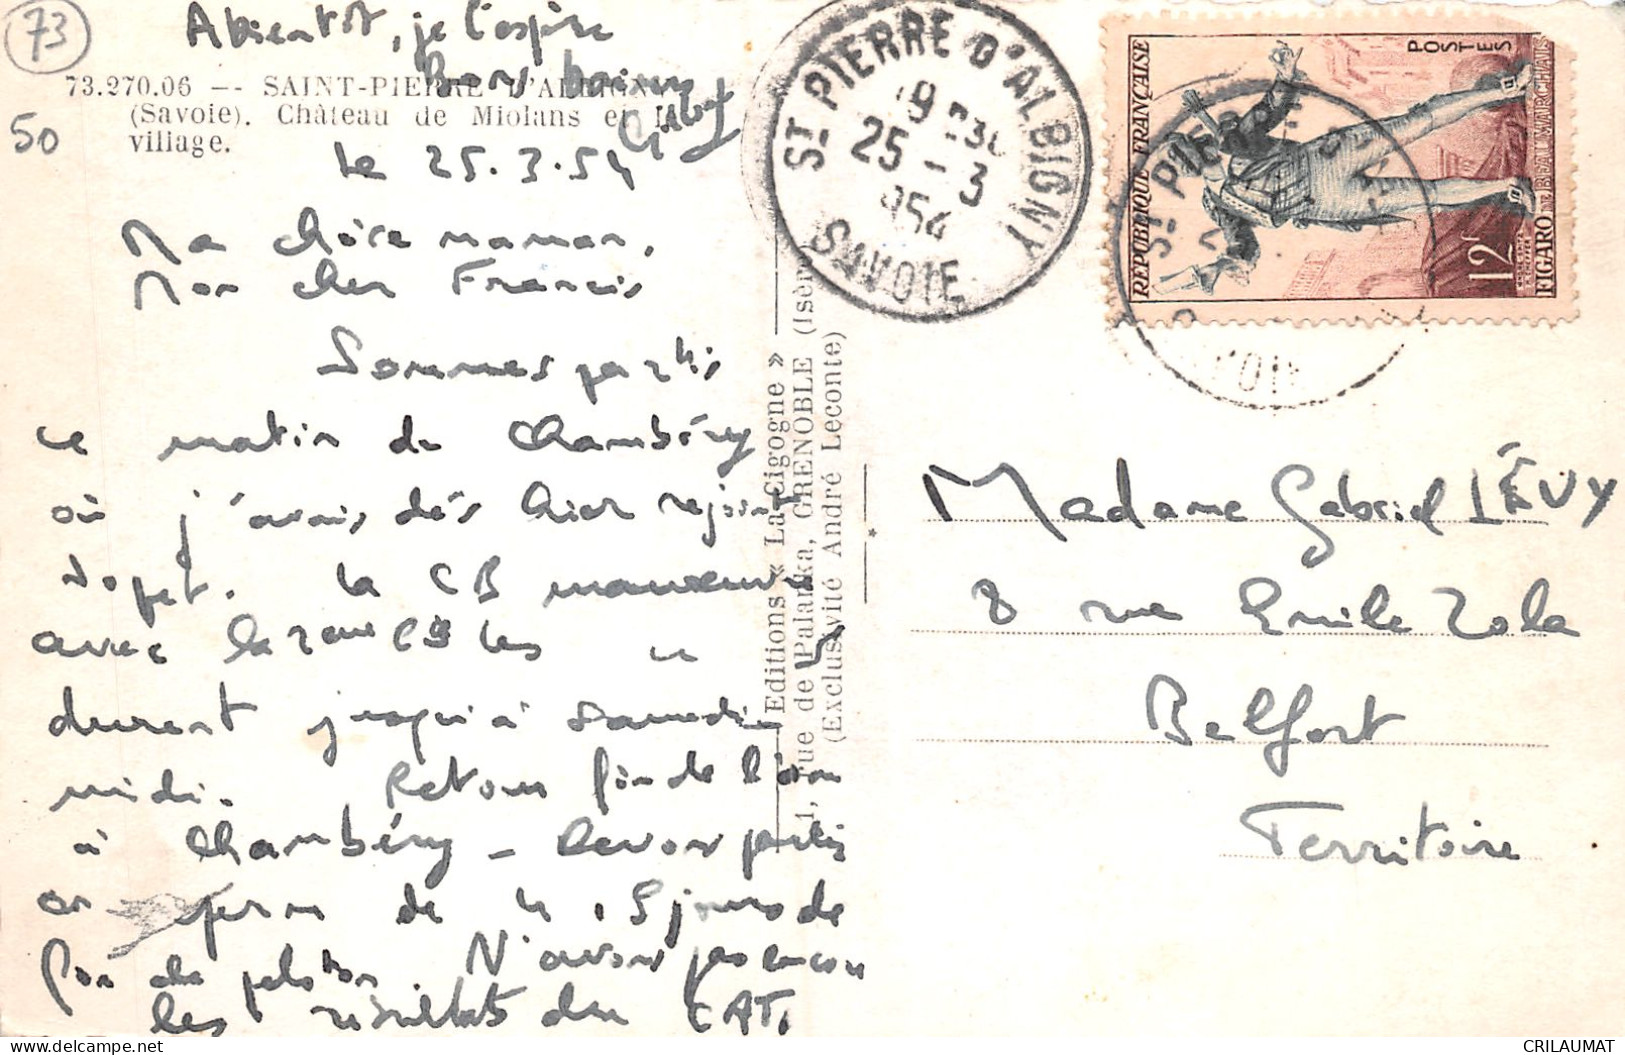 73
50
A bientôt, je l'espère
Bons baisers
73.270.06 — SAINT-PIERRE D'ALBIGNY
(Savoie). Château de Miolans et le
village.
Le 25.3.54
Ma chère maman,
Mon cher Francis
Sommes partis
ce matin de Chambéry
où j'avais dès hier rejoint
La CB manoeuvre
avec la 2ème CB les
durent jusqu'à samedi
midi. Retour fin de
à Chambéry - Devons partir
en perm de 4, 5 jours de
fin de peloton. N'avons pas encore
les résultats du CAT.
Editions « La Cigogne »
1, rue de Palanka, GRENOBLE (Isère)
(Exclusivité André Leconte)
ST PIERRE D'ALBIGNY
19 H 30
25 - 3
1954
SAVOIE
REPUBLIQUE FRANÇAISE
POSTES
12F
FIGARO DE BEAUMARCHAIS
ST PIERRE D'ALBIGNY
Madame Gabriel LÉVY
8 rue Emile Zola
Belfort
Territoire
CRILAUMAT